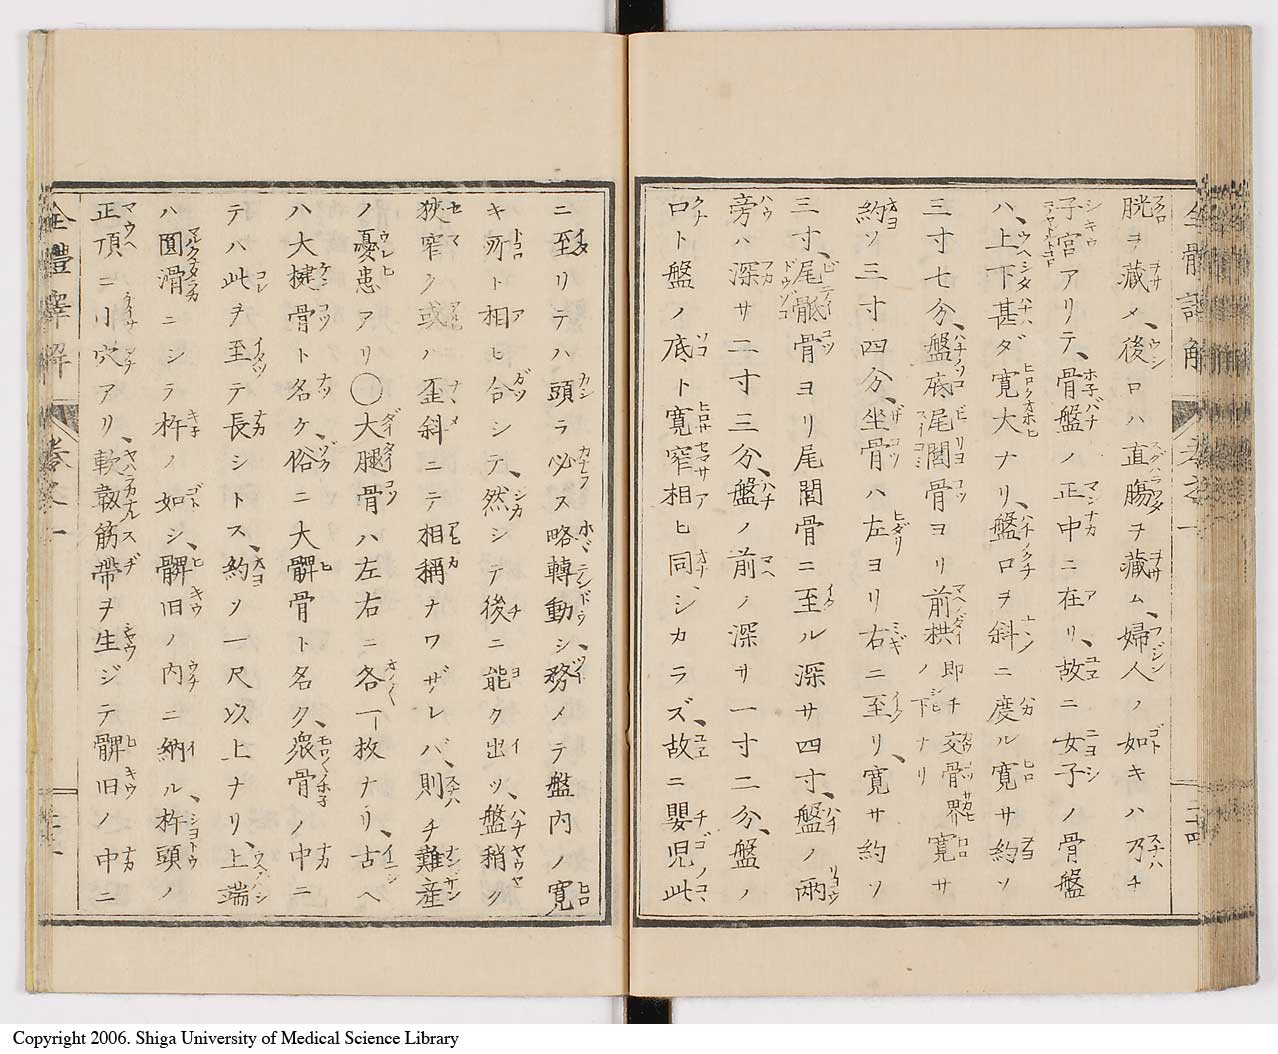 胱ヲ藏メ、後ロハ直腸ヲ藏ム、婦人ノ如キハ乃チ
子宮アリテ、骨盤ノ正中ニ在リ、故ニ女子ノ骨盤
ハ、上下甚ダ寛大ナリ、盤口ヲ斜ニ度ル寛サ約ソ
三寸七分、盤底尾閭骨ヨリ前栱即チ交骨界ノ下ナリ寛サ
約ソ三寸四分、坐骨ハ左ヨリ右ニ至リ、寛サ約ソ
三寸、尾骶骨ヨリ尾閭骨ニ至ル深サ四寸、盤ノ兩
旁ハ深サ二寸三分、盤ノ前ノ深サ一寸二分、盤ノ
口ト盤ノ底ト寛窄相ヒ同ジカラズ、故ニ嬰児此
ニ至リテハ頭ラ必ス略轉動シ、務メテ盤内ノ寛
キ所ト相ヒ合シテ、然シテ後ニ能ク出ツ、盤稍ク
狹窄ク或ハ歪斜ニテ相稱ナワザレバ、則チ難産
ノ憂患アリ〇大腿骨ハ左右ニ各一枚ナリ、古ヘ
ハ大楗骨ト名ケ、俗ニ大髀骨ト名ク、衆骨ノ中ニ
テハ此ヲ至テ長シトス、約ソ一尺以上ナリ、上端
ハ圓滑ニシラ杵ノ如シ、髀臼ノ内ニ納ル、杵頭ノ
正頂ニ小穴アリ、軟韌筋帶ヲ生ジテ髀臼ノ中ニ
全體譯解 卷之一
Copyright 2006. Shiga University of Medical Science Library